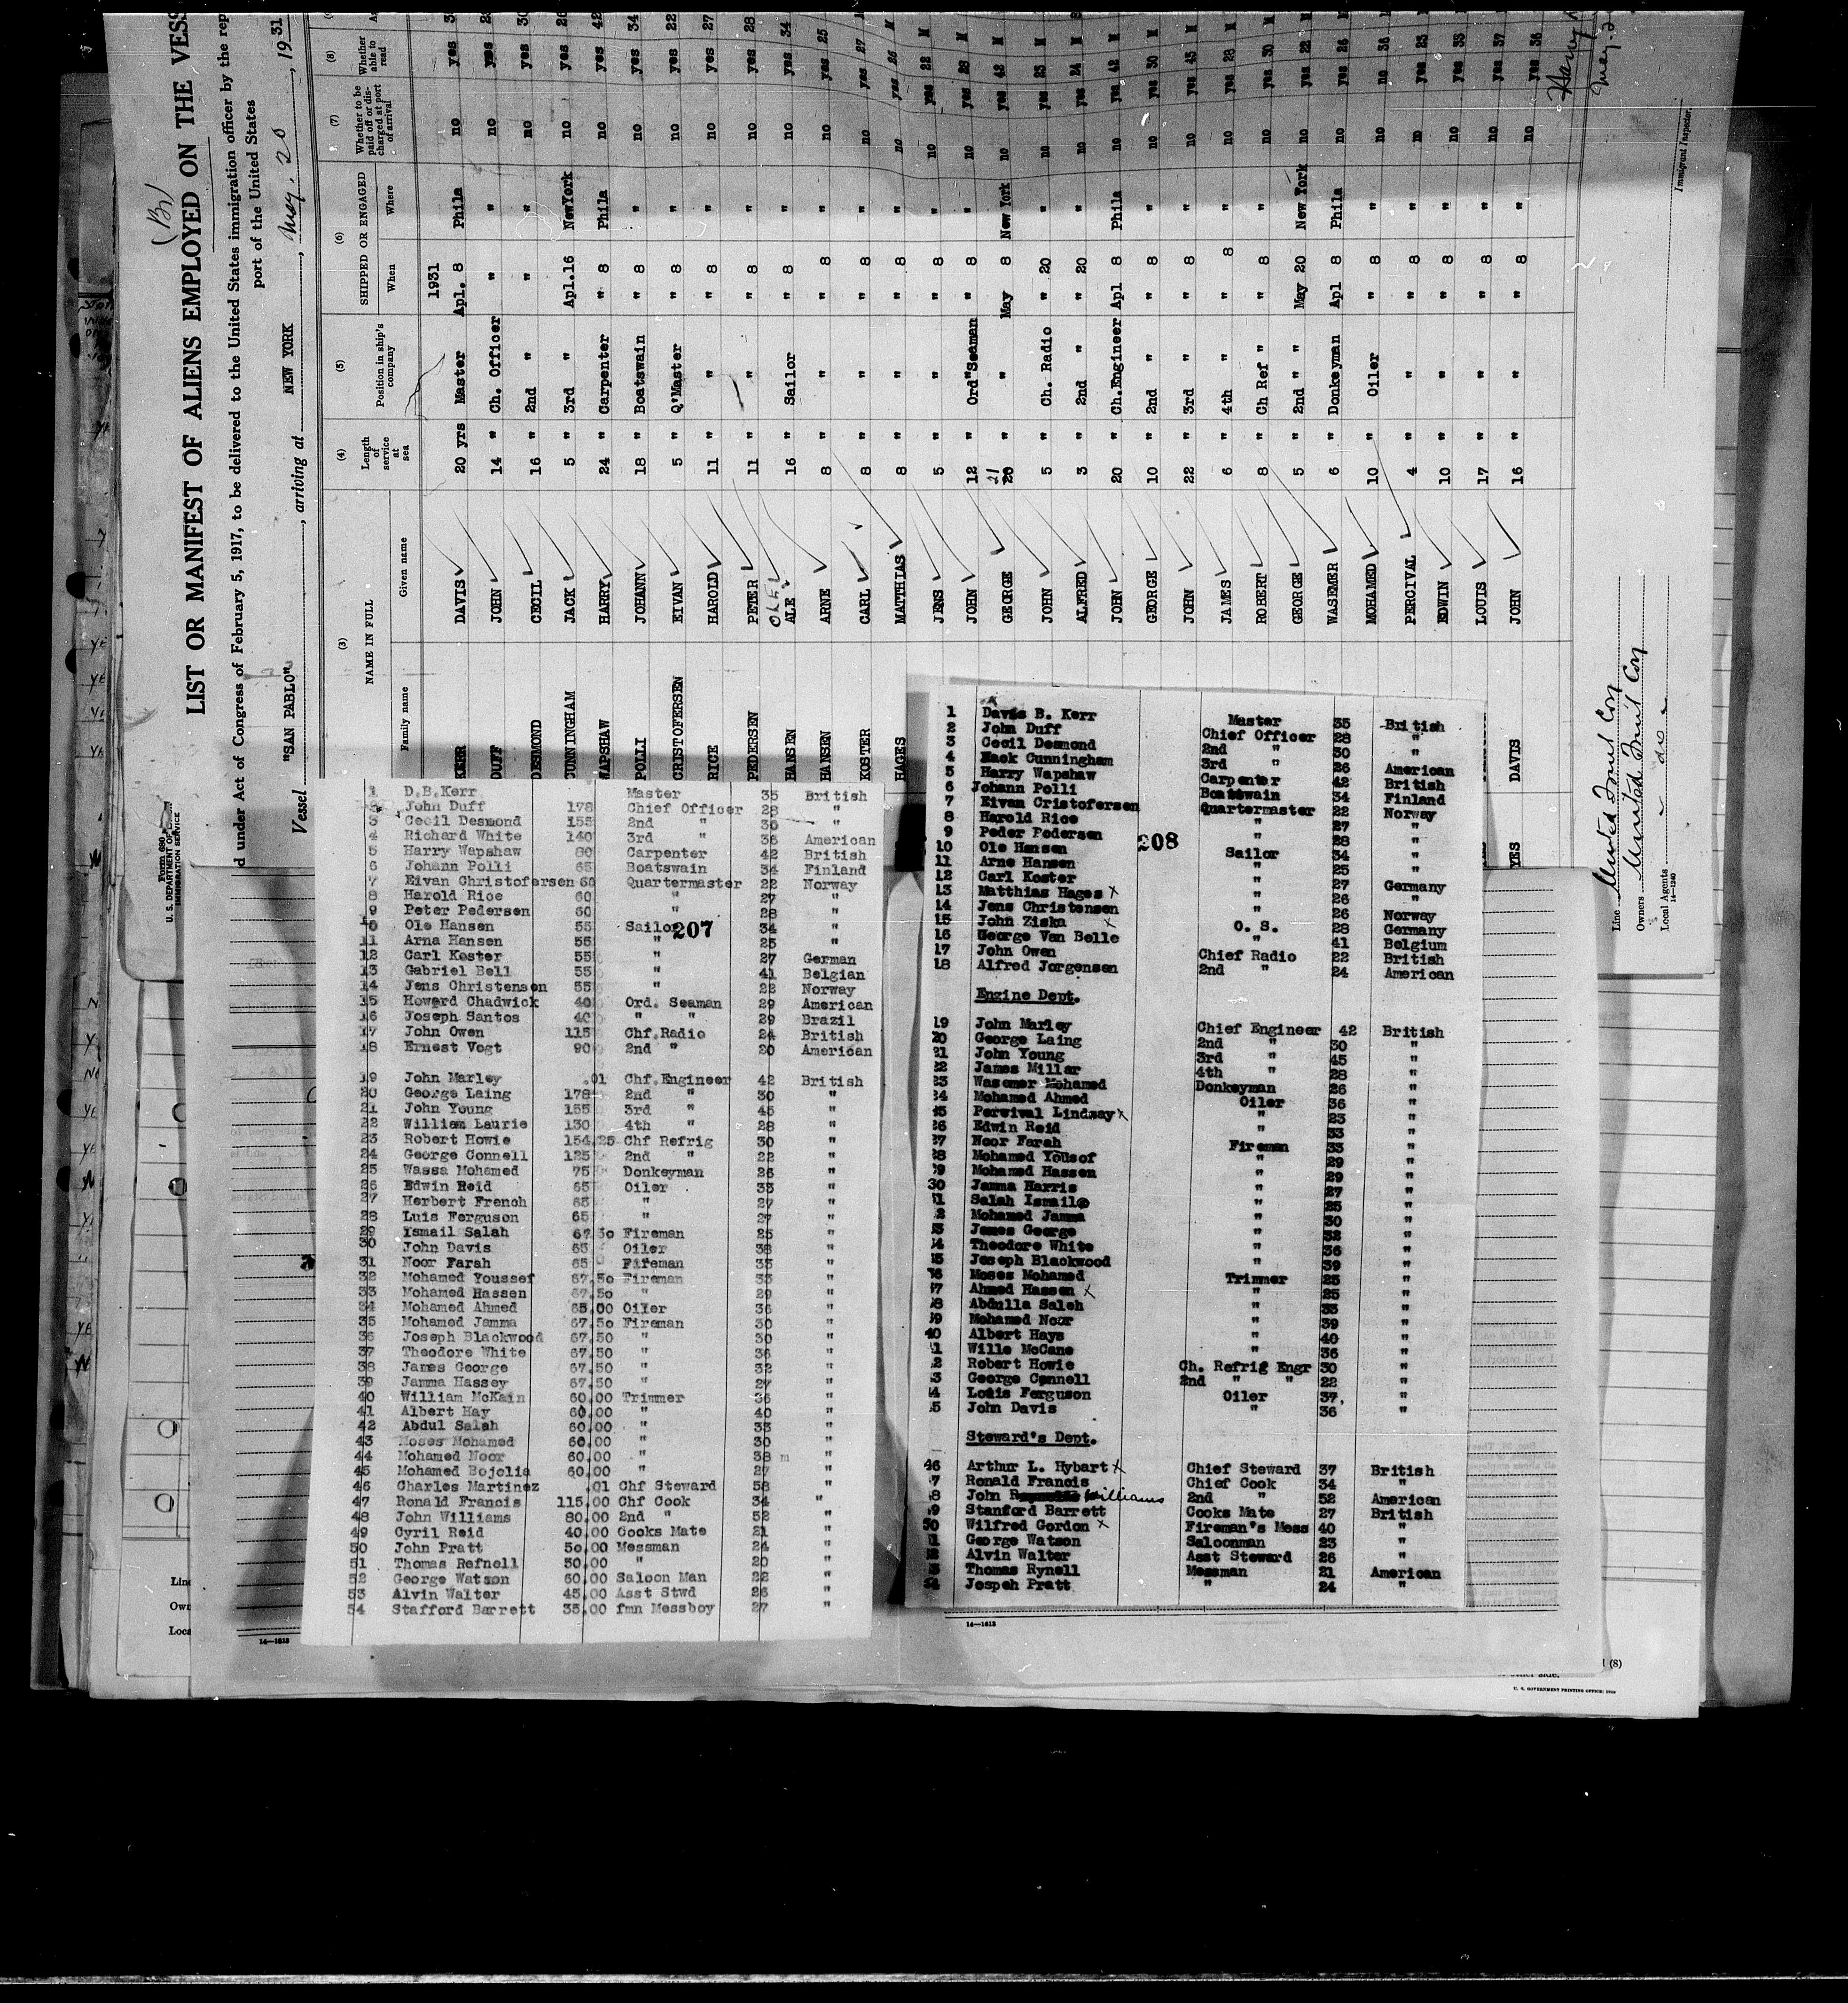 (Br)
LIST OR MANIFEST OF ALIENS EMPLOYED ON THE VESS
d under Act of Congress of February 5, 1917, to be delivered to the United States immigration officer by the rep
port of the United States
Vessel "SAN PABLO", arriving at NEW YORK, May. 20, 1931
U. S. DEPARTMENT OF
IMMIGRATION SERVICE
(3) (4) (5) (6) (7) (8)
NAME IN FULL
Family name Given name
Length of service at sea
Position in ship's company
SHIPPED OR ENGAGED
When Where
Whether to be paid off or discharged at port of arrival
Whether able to read
1931
KERR DAVIS 20 yrs Master Apl. 8 Phila no yes
DUFF JOHN 14 " Ch. Officer " " no yes
DESMOND CECIL 16 " 2nd " " " no yes
CUNNINGHAM JACK 5 " 3rd " Apl.16 NewYork no yes
WAPSHAW HARRY 24 " Carpenter " 8 Phila no yes 42
POLLI JOHANN 18 " Boatswain " 8 " no yes 34
CRISTOFERSEN EIVAN 5 " Q'Master " 8 " no yes 22
RICE HAROLD 11 " " " 8 " no yes 27
PEDERSEN PETER 11 " " " 8 " no yes 28
HANSEN OLE ALE 16 " Sailor " 8 " no yes 34
HANSEN ARNE 8 " " " 8 " no yes 25
KOSTER CARL 8 " " " 8 " no yes 27
HAGES MATTHIAS 8 " " " 8 " no yes 26 M
JENS 5 " " " 8 " no yes 22 M
JOHN 12 " Ord"Seaman " 8 " no yes 28 M
GEORGE 21 " " May 8 New York no yes 42 M
JOHN 5 " Ch. Radio " 20 " no yes 23 M
ALFRED 3 " 2nd " " 20 " no yes 24 M
JOHN 20 " Ch.Engineer Apl 8 Phila no yes 42 M
GEORGE 10 " 2nd " " 8 " no yes 30 M
JOHN 22 " 3rd " " 8 " no yes 45 M
JAMES 6 " 4th " " 8 " no yes 28 M
ROBERT 8 " Ch Ref " " 8 " no yes 30 M
GEORGE 5 " 2nd " " May 20 New York no yes 22 M
WASEMER 6 " Donkeyman Apl 8 Phila no yes 26
MOHAMED 10 " Oiler " 8 " no no 36
PERCIVAL 4 " " " 8 " no yes 23
EDWIN 10 " " " 8 " no yes 33
LOUIS 17 " " " 8 " no yes 37
YES DAVIS JOHN 16 " " " 8 " no yes 36
Immigrant Inspector.
Line United Fruit Coy
Owners United Fruit Coy
Local Agents do
14-1240
1 D.B.Kerr Master 35 British
2 John Duff 178 Chief Officer 28 "
3 Cecil Desmond 155 2nd " 30 "
4 Richard White 140 3rd " 36 American
5 Harry Wapshaw 80 Carpenter 42 British
6 Johann Polli 65 Boatswain 34 Finland
7 Eivan Christofersen 60 Quartermaster 22 Norway
8 Harold Rice 60 " 27 "
9 Peter Pedersen 60 " 28 "
10 Ole Hansen 55 Sailor 34 "
207
11 Arna Hansen 55 " 25 "
12 Carl Koster 55 " 27 German
13 Gabriel Bell 55 " 41 Belgian
14 Jens Christensen 55 " 22 Norway
15 Howard Chadwick 40 Ord. Seaman 29 American
16 Joseph Santos 40 " " 29 Brazil
17 John Owen 115 Chf.Radio 24 British
18 Ernest Vogt 90 2nd " 20 American
19 John Marley .01 Chf.Engineer 42 British
20 George Laing 178 2nd " 30 "
21 John Young 155 3rd " 45 "
22 William Laurie 130 4th " 28 "
23 Robert Howie 154.25 Chf Refrig 30 "
24 George Connell 125 2nd " 22 "
25 Wassa Mohamed 75 Donkeyman 26 "
26 Edwin Reid 65 Oiler 33 "
27 Herbert French 65 " 27 "
28 Luis Ferguson 65 " 27 "
29 Ismail Salah 67.50 Fireman 25 "
30 John Davis 65 Oiler 36 "
31 Noor Farah 65 Fireman 33 "
32 Mohamed Youssef 67.50 Fireman 33 "
33 Mohamed Hassen 67.50 " 29 "
34 Mohamed Ahmed 65.00 Oiler 36 "
35 Mohamed Jamma 67.50 Fireman 30 "
36 Joseph Blackwood 67.50 " 30 "
37 Theodore White 67.50 " 36 "
38 James George 67.50 " 32 "
39 Jamma Hassey 67.50 " 27 "
40 William McKain 60.00 Trimmer 36 "
41 Albert Hay 60.00 " 40 "
42 Abdul Salah 60.00 " 33 "
43 Moses Mohamed 60.00 " 30 "
44 Mohamed Noor 60.00 " 38 "
45 Mohamed Bojolia 60.00 " 27 "
46 Charles Martinez .01 Chf Steward 58 "
47 Ronald Francis 115.00 Chf Cook 34 "
48 John Williams 80.00 2nd " 52 "
49 Cyril Reid 40.00 Cooks Mate 21 "
50 John Pratt 50.00 Messman 24 "
51 Thomas Refnell 50.00 " 20 "
52 George Watson 60.00 Saloon Man 22 "
53 Alvin Walter 45.00 Asst Stwd 26 "
54 Stafford Barrett 35.00 fmn Messboy 27 "
14-1613
1 Davis B. Kerr Master 35 British
2 John Duff Chief Officer 28 "
3 Cecil Desmond 2nd " 30 "
4 Mack Cunningham 3rd " 26 American
5 Harry Wapshaw Carpenter 42 British
6 Johann Polli Boatswain 34 Finland
7 Eivan Cristofersen Quartermaster 22 Norway
8 Harold Rice " 27 "
9 Peder Federsen " 28 "
208
10 Ole Hansen Sailor 34 "
11 Arne Hansen " 25 "
12 Carl Koster " 27 Germany
13 Matthias Hages x " 26 "
14 Jens Christensen " 26 Norway
15 John Ziska x O. S. 28 Germany
16 George Van Belle " 41 Belgium
17 John Owen Chief Radio 22 British
18 Alfred Jorgensen 2nd " 24 American
Engine Dept.
19 John Marley Chief Engineer 42 British
20 George Laing 2nd " 30 "
21 John Young 3rd " 45 "
22 James Millar 4th " 28 "
23 Wasemer Mohamed Donkeyman 26 "
24 Mohamed Ahmed Oiler 36 "
25 Percival Lindsay x " 23 "
26 Edwin Reid " 33 "
27 Noor Farah Fireman 33 "
28 Mohamed Yousof " 29 "
29 Mohamed Hassen " 29 "
30 Jamma Harris " 27 "
1 Salah Ismail " 25 "
2 Mohamed Jamma " 30 "
3 James George " 32 "
4 Theodore White " 36 "
5 Joseph Blackwood " 39 "
6 Moses Mohamed Trimmer 25 "
7 Ahmed Hassen x " 25 "
8 Abdulla Saleh " 33 "
9 Mohamed Noor " 39 "
40 Albert Hays " 40 "
1 Wille McCane " 36 "
2 Robert Howie Ch. Refrig Engr 30 "
3 George Connell 2nd " " 22 "
4 Louis Ferguson Oiler 37 "
5 John Davis " 36 "
Steward's Dept.
46 Arthur L. Hybart x Chief Steward 37 British
7 Ronald Francis Chief Cook 34 "
8 John Williams 2nd " 52 American
9 Stanford Barrett Cooks Mate 27 British
50 Wilfred Gordon x Fireman's Mess 40 "
1 George Watson Saloonman 23 "
Alvin Walter Asst Steward 26 "
Thomas Rynell Messman 21 American
Jospeh Pratt " 24 "
14-1613
U. S. GOVERNMENT PRINTING OFFICE